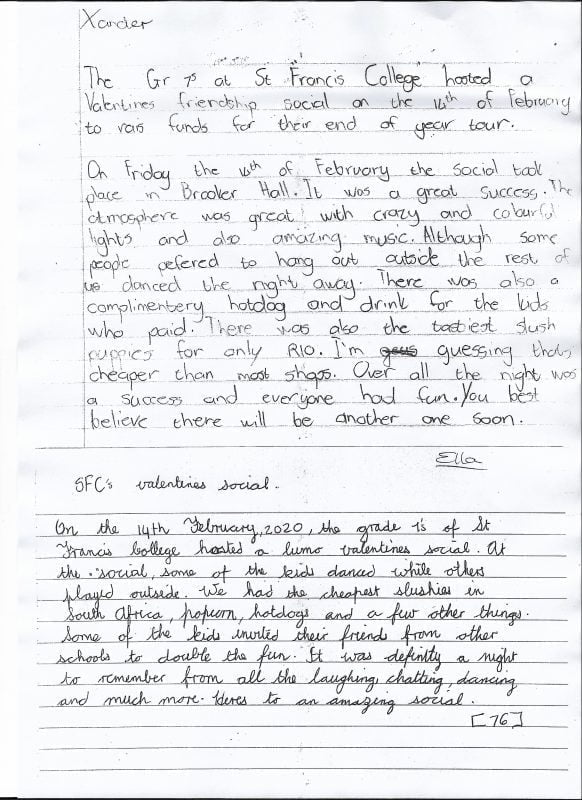 Xander
The Gr 7s at St Francis College hosted a
Valentines friendship social on the 14th of February
to rais funds for their end of year tour.
On Friday the 14th of February the social took
place in Brooker Hall. It was a great success. The
atmosphere was great! with crazy and colourful
lights and also amazing music. Although some
people pefered to hang out outside the rest of
us danced the night away. There was also a
complimentery hotdog and drink for the kids
who paid. There was also the tastiest slush
puppies for only R10. I'm guessing thats
cheaper than most shops. Over all the night was
a success and everyone had fun. You best
believe there will be another one soon.
Ella
SFC's valentines social.
On the 14th February, 2020, the grade 7's of St
Francis College hosted a lumo valentines social. At
the social, some of the kids danced while others
played outside. We had the cheapest slushies in
South Africa, popcorn, hotdogs and a few other things.
Some of the kids invited their friends from other
schools to double the fun. It was definitly a night
to remember from all the laughing, chatting, dancing
and much more. Heres to an amazing social.
[76]